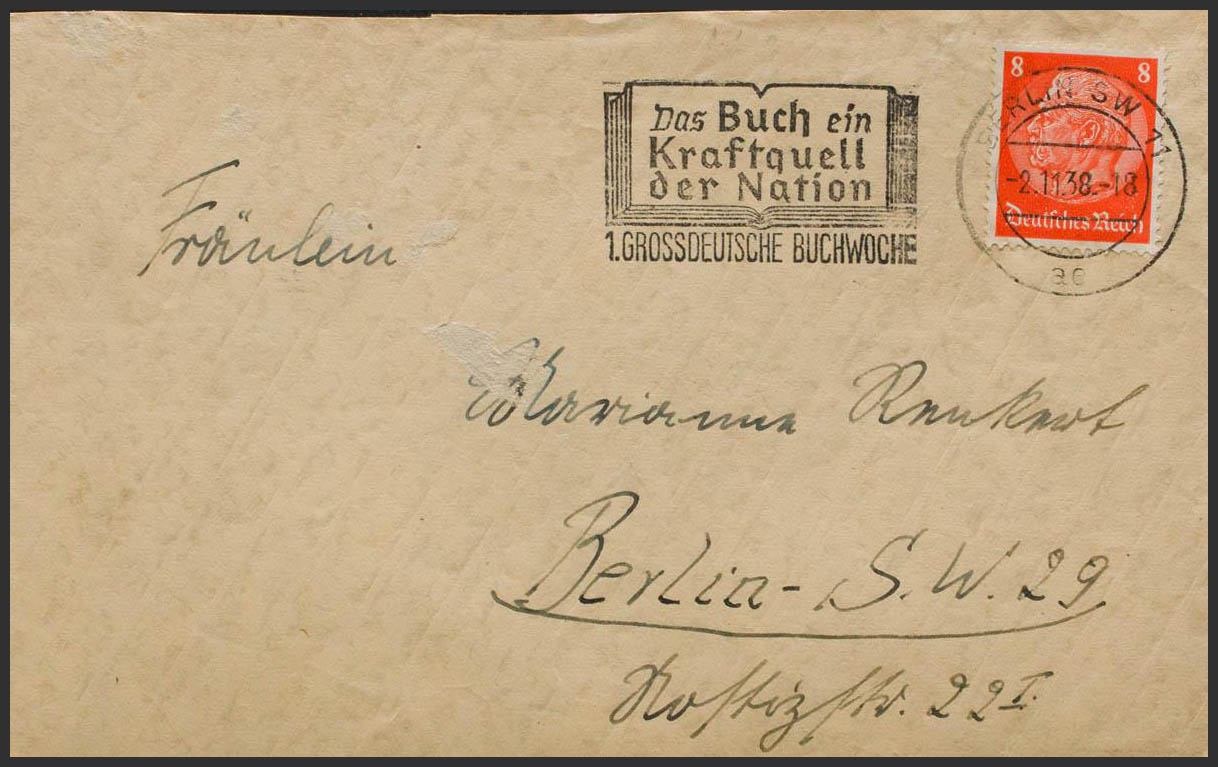 8 8
Deutsches Reich
BERLIN SW 11
-2.11.38.-18
ae
Das Buch ein
Kraftquell
der Nation
1. GROSSDEUTSCHE BUCHWOCHE
Fräulein
Marianne Renkert
Berlin - S.W. 29
Nostizstr. 22 I.